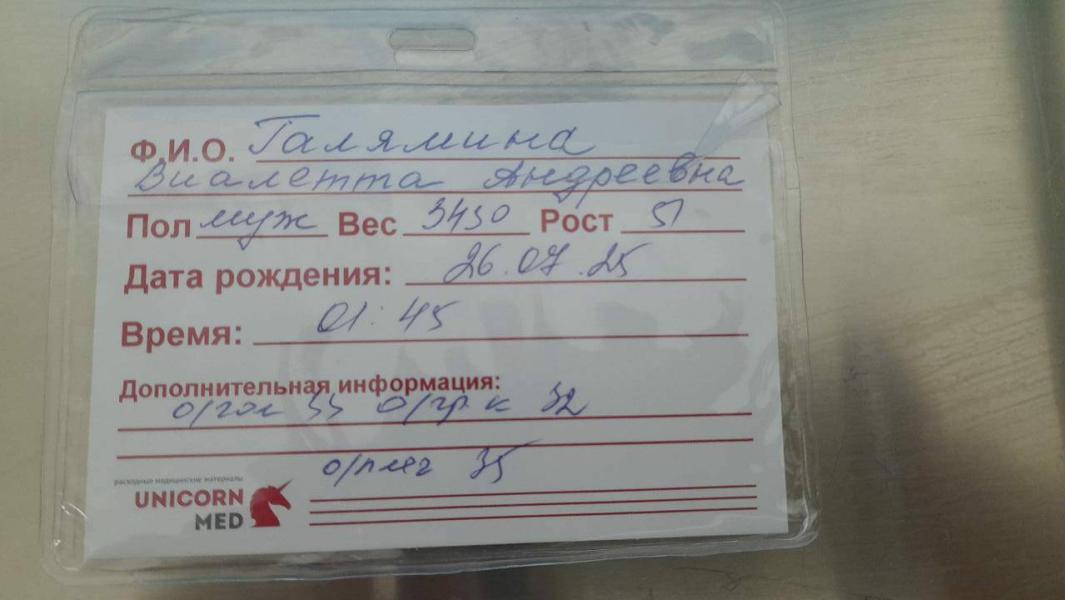 Ф.И.О. Галямина
Виалетта Андреевна
Пол муж Вес 3430 Рост 51
Дата рождения: 26.07.25
Время: 01:45
Дополнительная информация:
о/гол 35 о/гр к 32
о/плеч 35
расходные медицинские материалы
UNICORN
MED